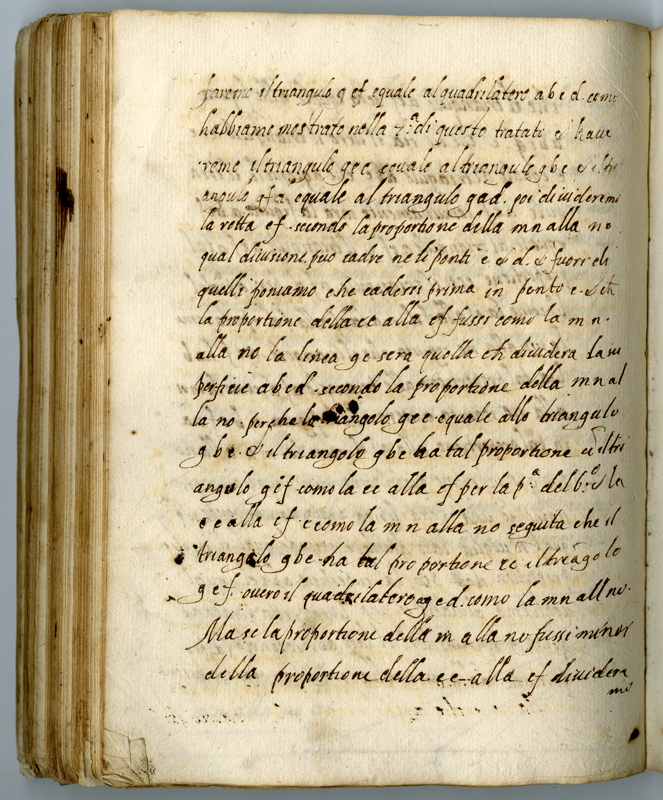 faremo il triangulo g ef equale al quadrilatero a b c d. come
habbiamo mostrato nella 7.ª di questo tratato & have
remo il triangulo gec equale al triangulo gbc & il tri
angulo gfd equale al triangulo gad. poi divideremo
la retta ef. secondo la proportione della mn alla no.
qual divisione può cadre ne li ponti c & d. & fuori di
quelli poniamo che cadessi prima in ponto c. & ch
la proportione della ec alla cf fussi como la m n.
alla no la linea gc sera quella ch dividera la su
perficie abcd. secondo la proportione della mn al
la no. perche lo triangolo gec equale allo triangulo
gbc. & il triangolo gbc ha tal proportione cō il tri
angulo gcf como la ec alla cf per la p.ª del 6.º & la
ec alla cf e como la mn alla no seguita che il
triangolo gbc ha tal proportione cō il triāgolo
gcf. overo il quadrilatero agcd. como la mn all no.
Ma se la proportione della m alla no fussi minor
della proportione della ec alla cf dividere
mo